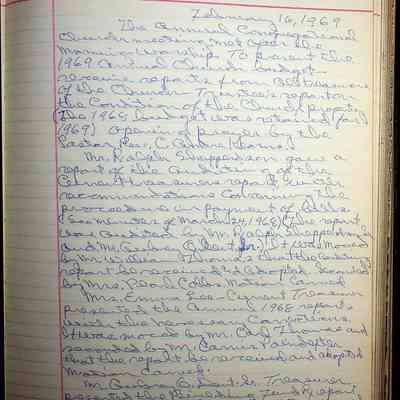 February 16, 1969
The Annual Congregational
Church meeting met after the
Morning worship. To present the
1969 Annual Church budget
receive reports from all treasurers
of the Church - Trustee's report on
the Condition of the Church property
(The 1968 budget was retained for
1969) Opening prayer by the
Pastor, Rev. C.
Mr. Ralph Shepperdson gave a
report of the audition of the
Current treasurers report, under
recommendation concerning the
procedure on payment of bills.
(See minutes of March 24, 1968) The report
was audited by Mr. Ralph Shepperdson
and Mr. It was moved
by Mr. William Thomas that the auditing
report be received and adopted. Seconded
by Mrs. Pearl Motion Carried
Mrs. Emma Lee - Current Treasurer
presented the Annual 1968 report.
with the necessary Corrections.
It was moved by Mr. Carl Thomas and
seconded by Mr.
that the report be received and adopted
Motion Carried.
Mr. Sr. Treasurer
presented the Building Fund report,